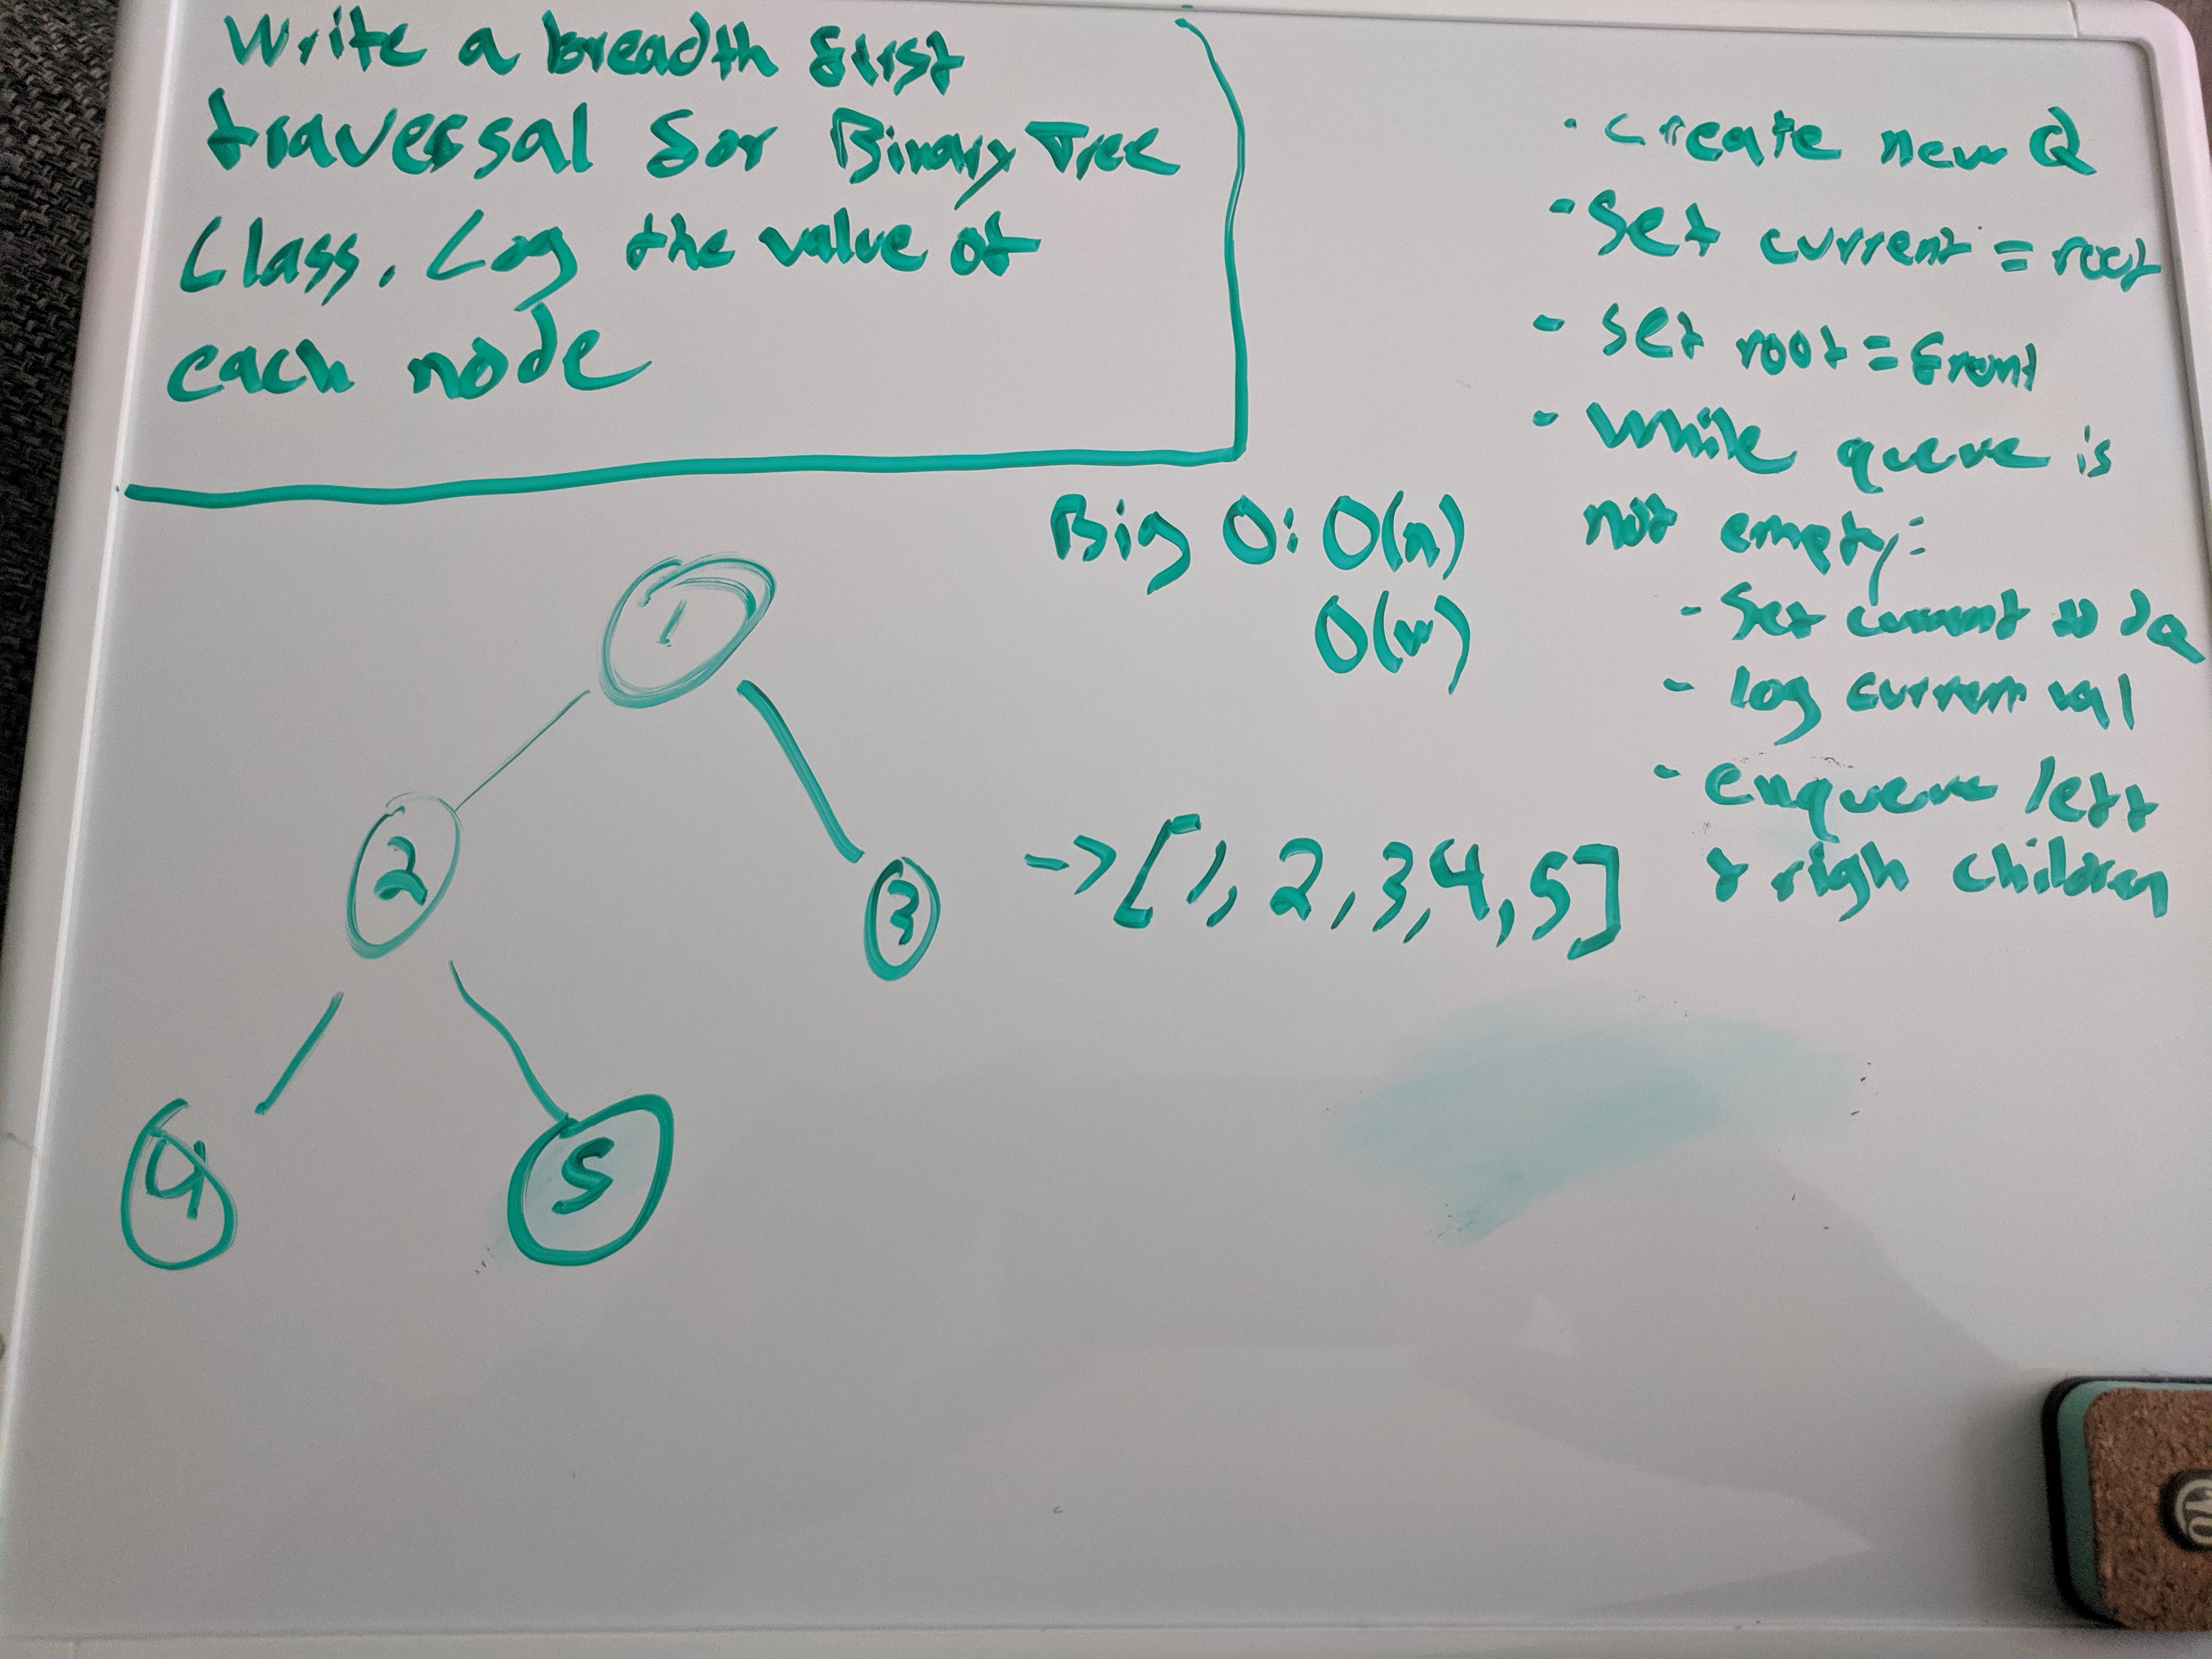 Write a breadth first
traversal for Binary Tree
Class. Log the value of
each node
Big O: O(n)
O(w)
1
2
3
4
5
->[1, 2, 3, 4, 5]
- create new Q
- set current = root
- set root = front
- while queue is
not empty:
- Set current to dQ
- log current val
- enqueue left
& righ children